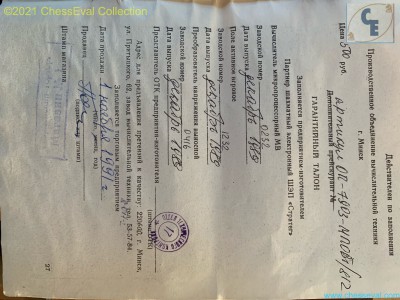 ©2021 ChessEval Collection
Действителен по заполнении
Производственное объединение вычислительной техники
г. Минск
Цена 500 руб.
ГАРАНТИЙНЫЙ ТАЛОН
Заполняется предприятием-изготовителем
Партнер шахматный электронный ШЭП «Стратег»
Вычислитель микропроцессорный МВ
Заводской номер 0252
Дата выпуска декабрь 1989
Поле активное игровое
Заводской номер 1232
Дата выпуска декабрь 1989
Преобразователь напряжения выносной
Заводской номер 0416
Дата выпуска декабрь 1989
Представитель ОТК предприятия-изготовителя
Адрес для предъявления претензий к качеству: 220600, г. Минск,
ул. Притыцкого, 62, завод вычислительной техники, тел. 53-57-84.
Заполняется торговым предприятием
Дата продажи 1 ноября 1991 г.
(число, месяц, год)
Продавец
Штамп магазина
27
www.chesseval.com